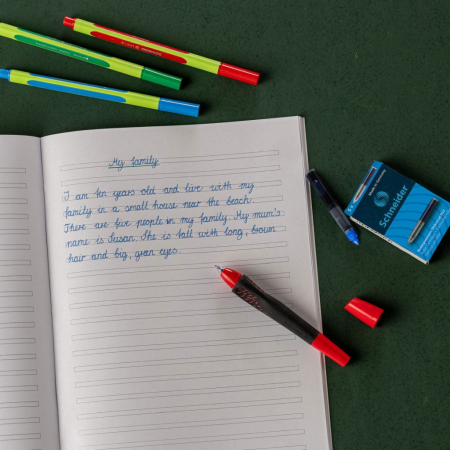 My family
I am ten years old and live with my
family in a small house near the beach.
There are five people in my family. My mum's
name is Susan. She is tall with long, brown
hair and big, green eyes.
Schneider